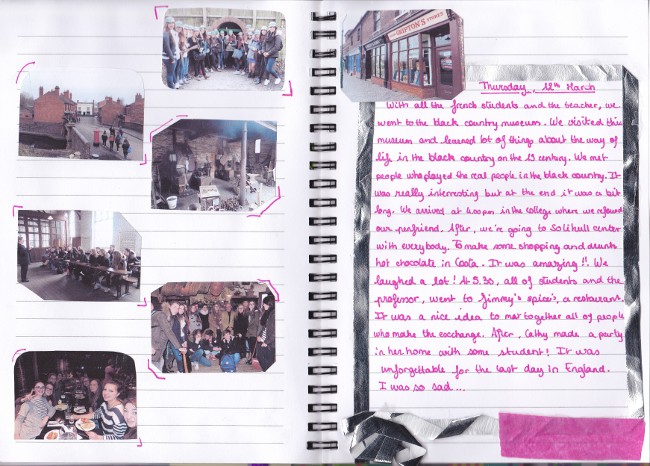 GRIPTON'S
Thursday, 12th March
With all the french students and the teacher, we
went to the black country museum. We visited this
museum and learned lot of things about the way of
life in the black country on the 19 century. We met
people who played the real people in the black country. It
was really interesting but at the end it was a bit
long. We arrived at 4.00 pm in the college where we refound
our penfriend. After, we're going to Solihull center
with everybody. To make some shopping and drunk
hot chocolate in Costa. It was amazing!! We
laughed a lot! At 5.30, all of students and the
professor, went to Jimmy's spices, a restaurant.
It was a nice idea to met together all of people
who make the exchange. After, Cathy made a party
in her home with some student! It was
unforgettable for the last day in England.
I was so sad...